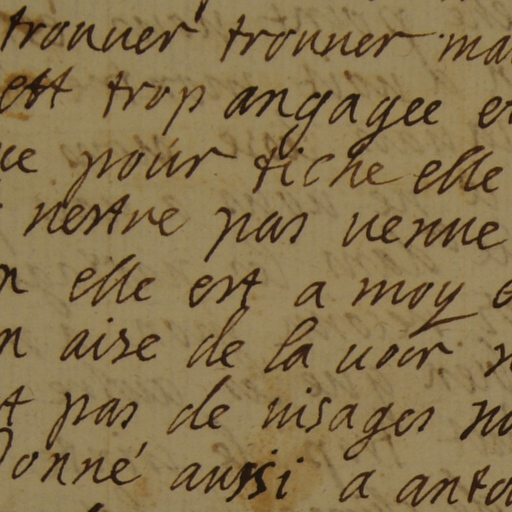 trouuer trouuer ma
est trop angagee e
ue pour tiche elle
nestre pas uenue
n elle est a moy e
n aise de la uoir n
t pas de uisages no
donné aussi a anto